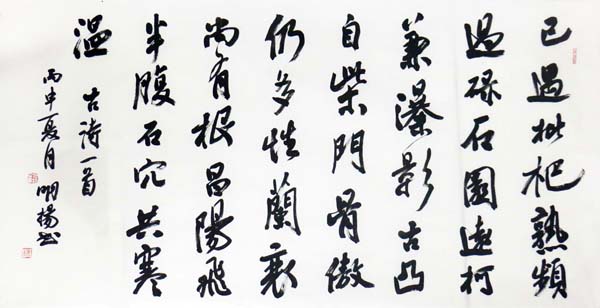 已過枇杷熟頻
過碌石園遠柯
兼瀑影古凸
自柴門骨傲
仍多性蘭衰
尚有根昌陽飛
半腹石穴共寒
溫 古詩一首
丙申夏月 明楊書